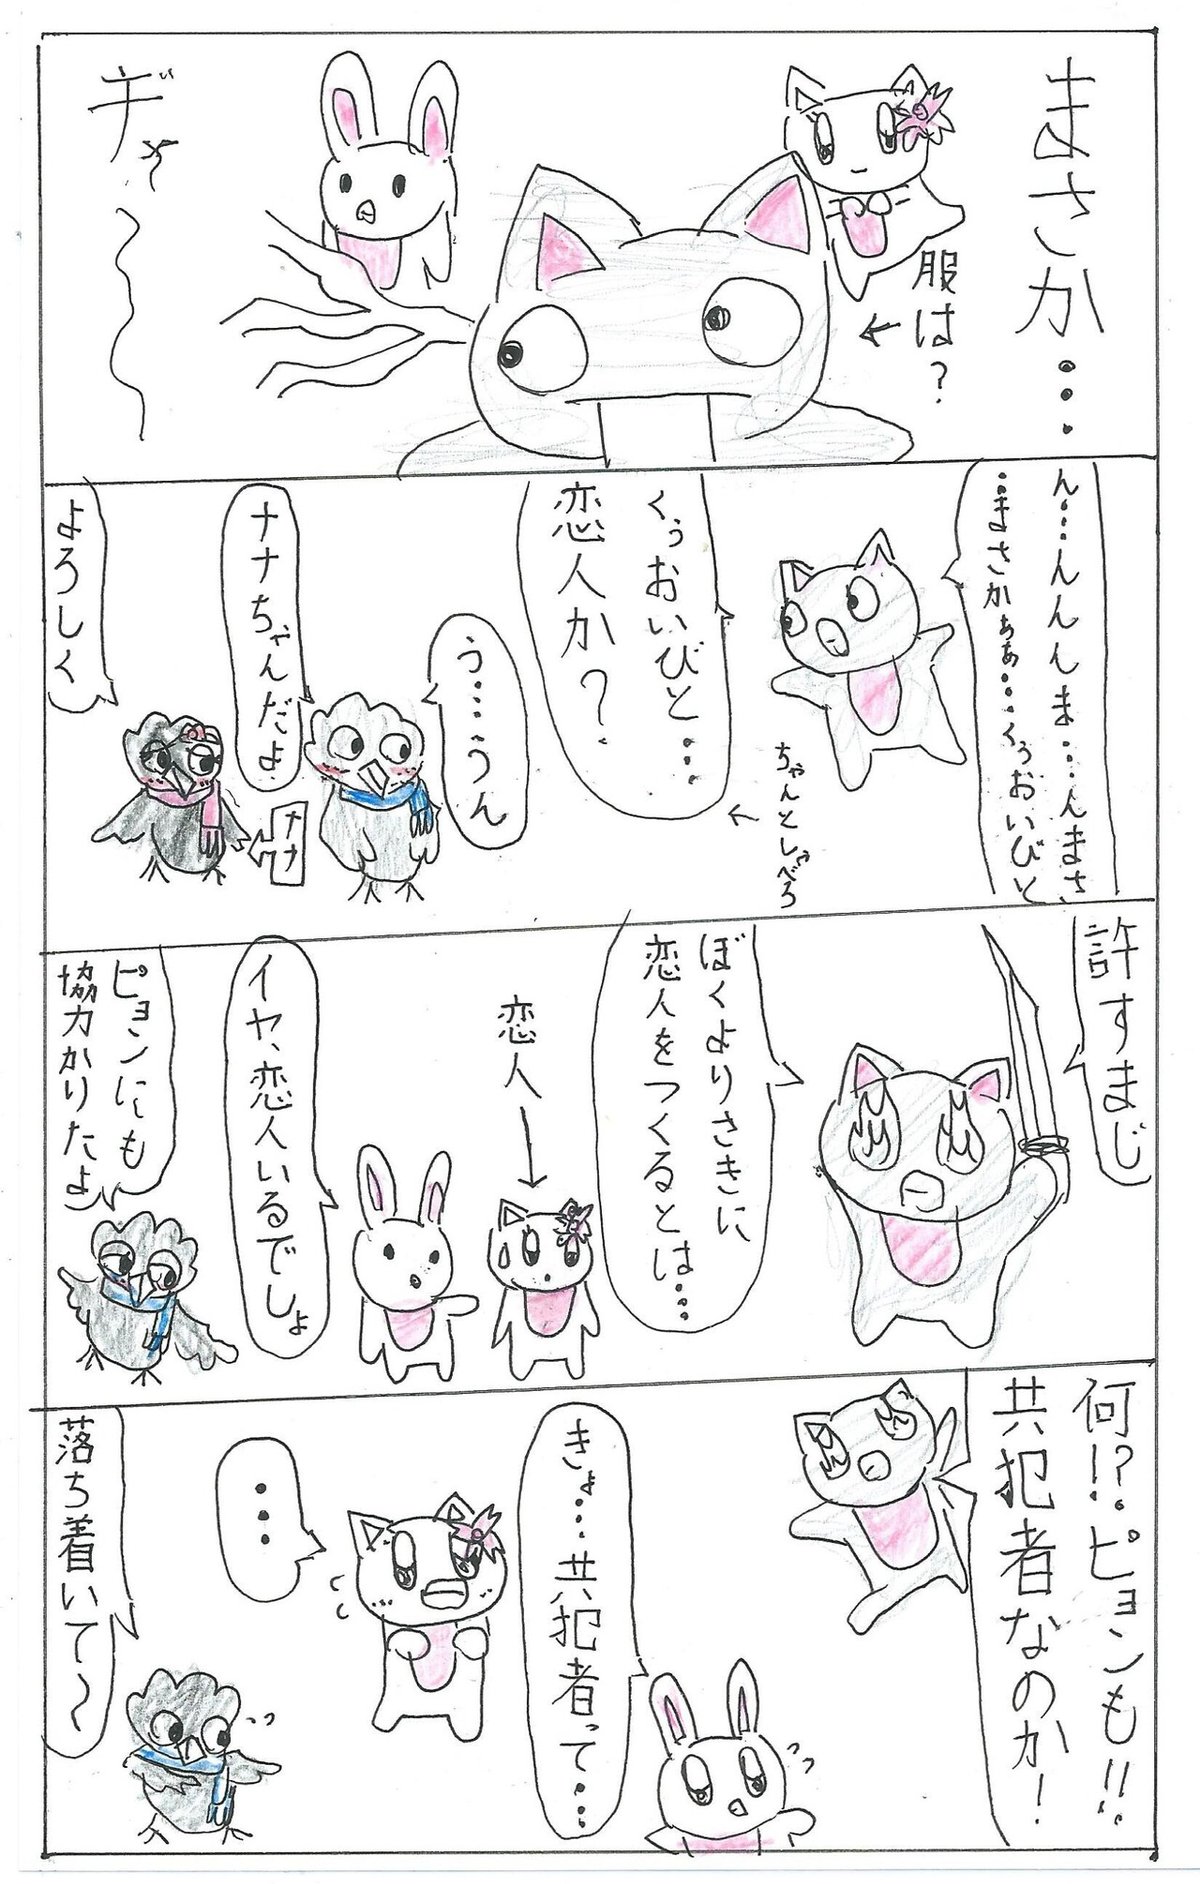 まさか…
服は?
ギャ〜
ん…んんんま…んまさ
…まさかぁぁ…くぅおいびと
くぅおいびと…
恋人か?
ちゃんとしゃべろ
う…うん
ナナちゃんだよ
ナナ
よろしく
許すまじ
ぼくよりさきに
恋人をつくるとは…
恋人
イヤ、恋人いるでしょ
ピョンにも
協力かりたよ
何!?ピョンも!!
共犯者なのか!
きょ…共犯者って…
…
落ち着いて〜